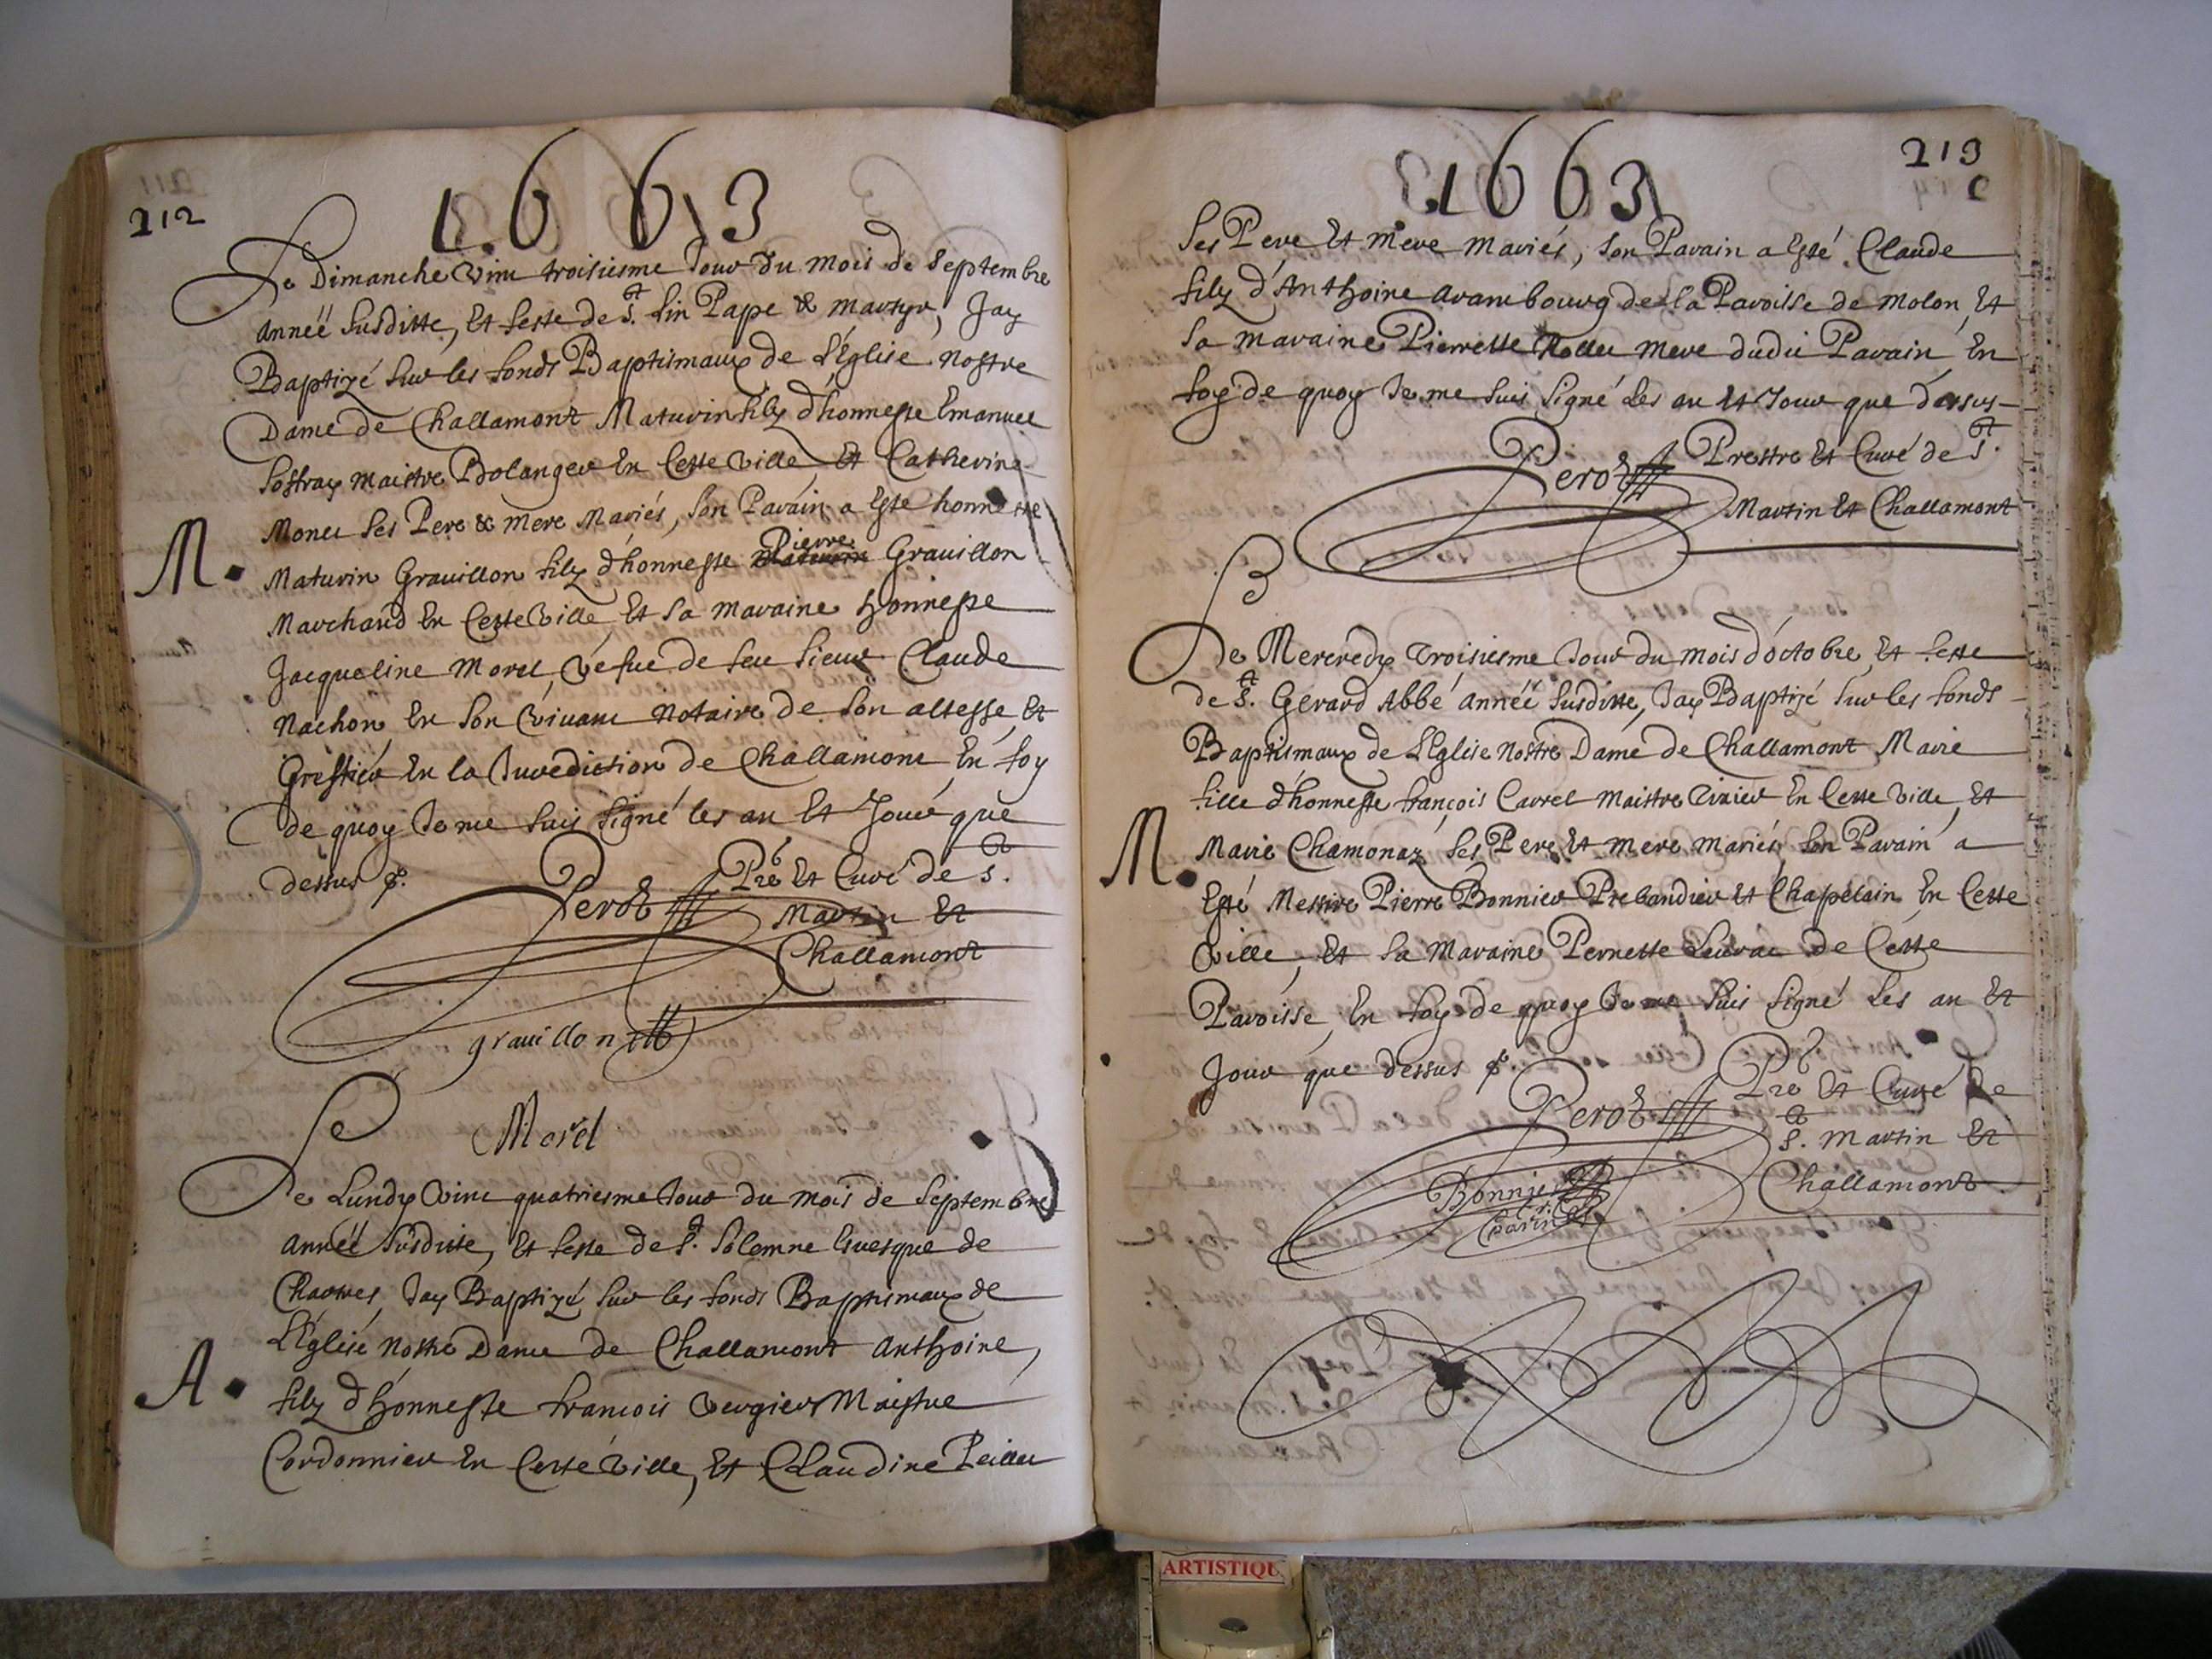 212
1663
Le Dimanche Vint troisiesme Jour du mois de Septembre
année susditte, et feste de St. Lin Pape & martyr, Jay
Baptizé sur les fonds Baptismaux de L'Église nostre
Dame de Challamont Maturin filz d'honneste Emanuel
Sostray maistre Bolanger En Cette Ville, Et Catherine
Monet ses Pere & mere mariés, son Parain a Esté honneste
M. Maturin Grauillon filz d'honneste Pierre Grauillon
Marchand En Cette Ville, Et sa maraine honneste
Jacqueline Morel, Vefue de feu sieur Claude
Nachon En son Viuant notaire de son altesse, Et
Greffier En la Jurediction de Challamont En foy
de quoy Je me suis signé les an Et Jour que
dessus
Perot Pre Et Curé de St.
Martin Et
Challamont
grauillon
Morel
Le Lundy Vint quatriesme Jour du mois de Septembre
année susditte, Et feste de St. Solemne Euesque de
Chartres, Jay Baptizé sur les fonds Baptismaux de
L'Église nostre Dame de Challamont Anthoine,
A. filz d'honneste francois Vergier Maistre
Cordonnier En Cette Ville, Et Claudine Peillet
213
1663
ses Pere Et mere mariés, son Parain a Esté Claude
filz d'Anthoine Arambourg de la Paroisse de Molon, Et
sa maraine Pierrette Rollet mere dudit Parain, En
foy de quoy Je me suis signé Les an Et Jour que dessus
Perot Prestre Et Curé de St.
Martin Et Challamont
Le Mercredy Troisiesme Jour du mois d'octobre, Et feste
de St. Gerard Abbé année susditte, Jay Baptizé sur les fonds
Baptismaux de L'Eglise nostre Dame de Challamont Marie
fille d'honneste françois Carrel maistre Tixier En Cette Ville, Et
M. Marie Chamonaz ses Pere Et mere mariés, son Parain a
Esté Messire Pierre Bonnier Prebandier Et Chapelain En Cette
Ville, Et sa Maraine Pernette de Cette
Paroisse, En foy de quoy Je me suis signé Les an Et
Jour que dessus
Perot Pre Et Curé de
St. Martin Et
Challamont
Bonnier
Parin
ARTISTIQU